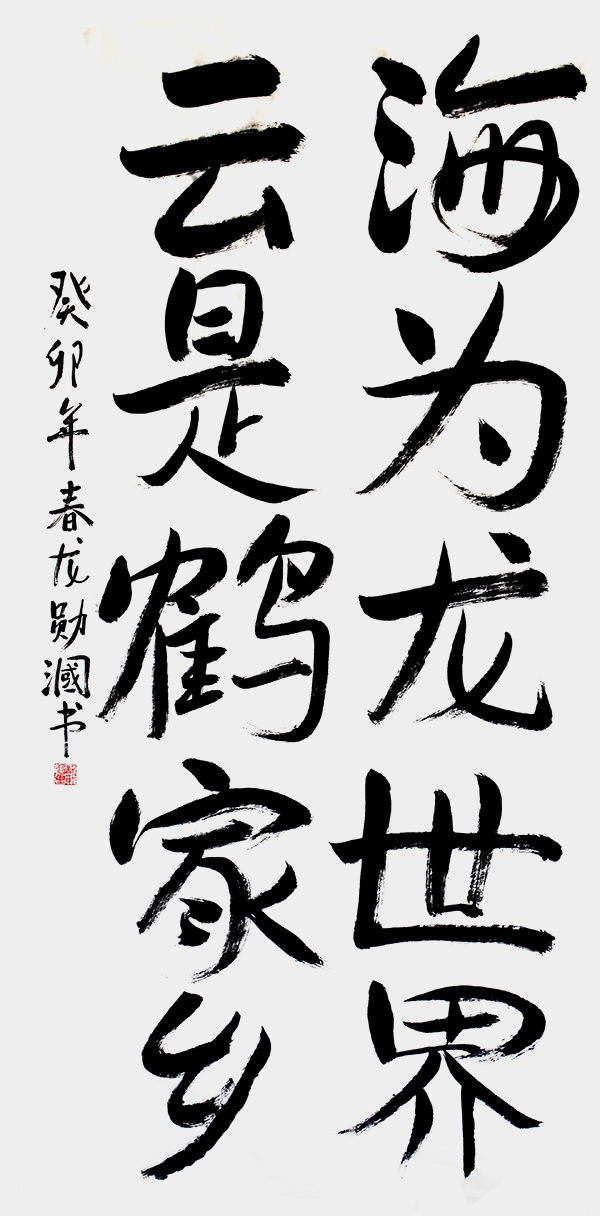 海为龙世界
云是鹤家乡
癸卯年春龙勋漍书